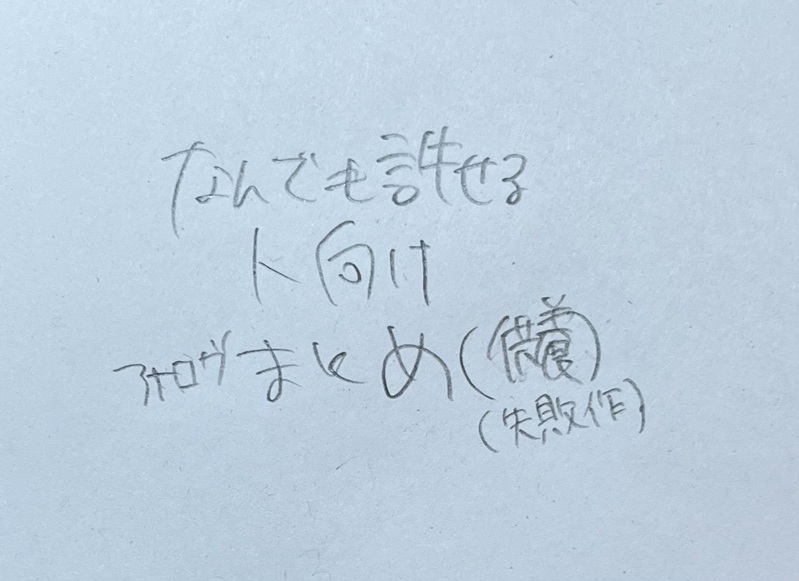 なんでも許せる
人向け
アナログまとめ(供養)
(失敗作)